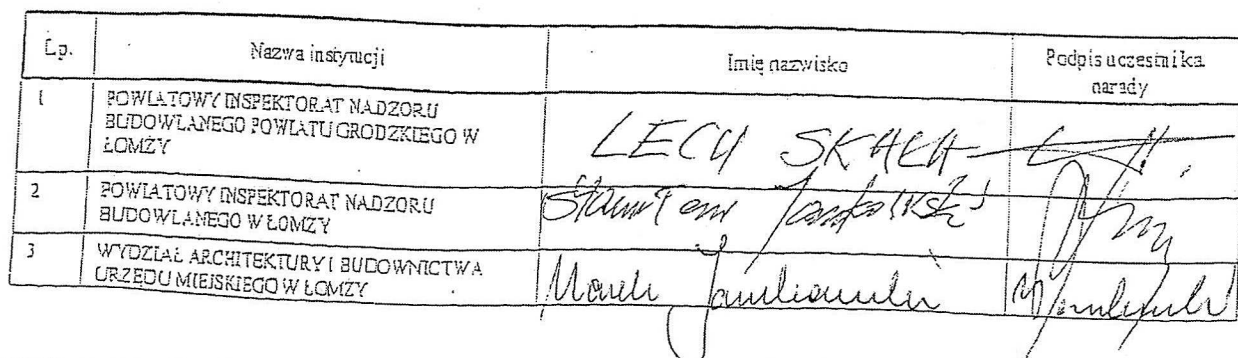 Lp. Nazwa instytucji Imię nazwisko Podpis uczestnika
narady
1 POWIATOWY INSPEKTORAT NADZORU
BUDOWLANEGO POWIATU GRODZKIEGO W
ŁOMŻY
LECH SKAŁA
2 POWIATOWY INSPEKTORAT NADZORU
BUDOWLANEGO W ŁOMŻY
3 WYDZIAŁ ARCHITEKTURY I BUDOWNICTWA
URZĘDU MIEJSKIEGO W ŁOMŻY
Marek